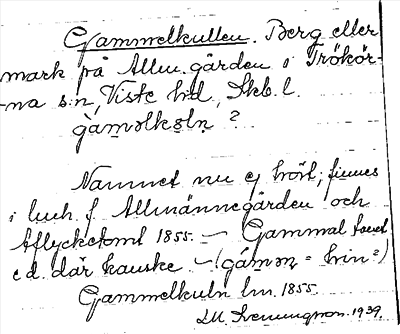 Gammelkullen. Berg eller
mark på Allm.gården i Trökör-
-na sn, Viste hd, Skb. l.
gámǝlkɵlṇ ?
Namnet nu ej hört; finnes
i luch. f. Allmännegården och
Aflycketomt 1855. — Gammal
e d. där kanske — (gámǝṇ = hin?)
Gammelkuln lm. 1855.
LM Svenungson. 1939.